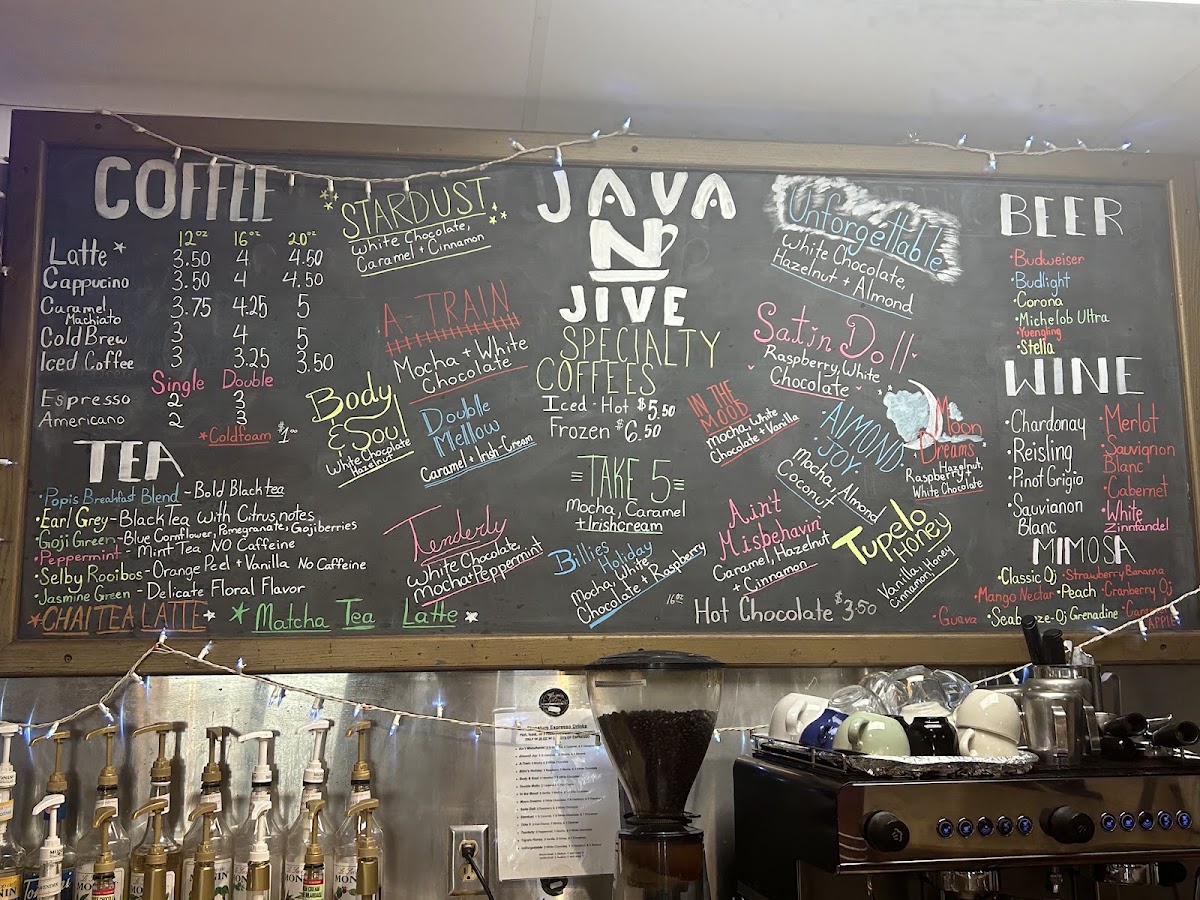 COFFEE
12oz 16oz 20oz
Latte * 3.50 4 4.50
Cappucino 3.50 4 4.50
Caramel
Machiato 3.75 4.25 5
Cold Brew 3 4 5
Iced Coffee 3 3.25 3.50
Single Double
Espresso 2 3
Americano 2 3
*Coldfoam $1.00
TEA
•Popis Breakfast Blend - Bold Black tea
•Earl Grey - Black Tea with Citrus notes
•Goji Green - Blue Cornflower, Pomegranate, Gojiberries
•Peppermint - Mint Tea NO Caffeine
•Selby Rooibos - Orange Peel + Vanilla No Caffeine
•Jasmine Green - Delicate Floral Flavor
*CHAI TEA LATTE* *Matcha Tea Latte*
STARDUST
White Chocolate,
Caramel + Cinnamon
A-TRAIN
Mocha + White
Chocolate
Body
& Soul
White Chocolate
Hazelnut
Double
Mellow
Caramel + Irish Cream
Tenderly
White Chocolate,
Mocha + Peppermint
JAVA
N
JIVE
SPECIALTY
COFFEES
Iced • Hot $5.50
Frozen $6.50
TAKE 5
Mocha, Caramel
+ Irishcream
Billies Holiday
Mocha, White
Chocolate + Raspberry
Unforgettable
White Chocolate,
Hazelnut + Almond
Satin Doll
Raspberry, White
Chocolate
IN THE
MOOD
Mocha, White
Chocolate + Vanilla
ALMOND
JOY
Mocha, Almond
Coconut
Moon
Dreams
Raspberry, Hazelnut,
White Chocolate
Ain't
Misbehavin'
Caramel, Hazelnut
+ Cinnamon
Tupelo
Honey
Vanilla, Honey
Cinnamon
16oz Hot Chocolate $3.50
BEER
•Budweiser
•Budlight
•Corona
•Michelob Ultra
•Yuengling
•Stella
WINE
•Chardonay
•Reisling
•Pinot Grigio
•Sauvanion
Blanc
•Merlot
•Sauvignon
Blanc
•Cabernet
•White
Zinnfandel
MIMOSA
•Classic Oj •Strawberry Banana
•Mango Nectar •Peach •Cranberry Oj
•Guava •Seabreeze-Oj Grenadine
APPLE
Signature Espresso Drinks
MONIN